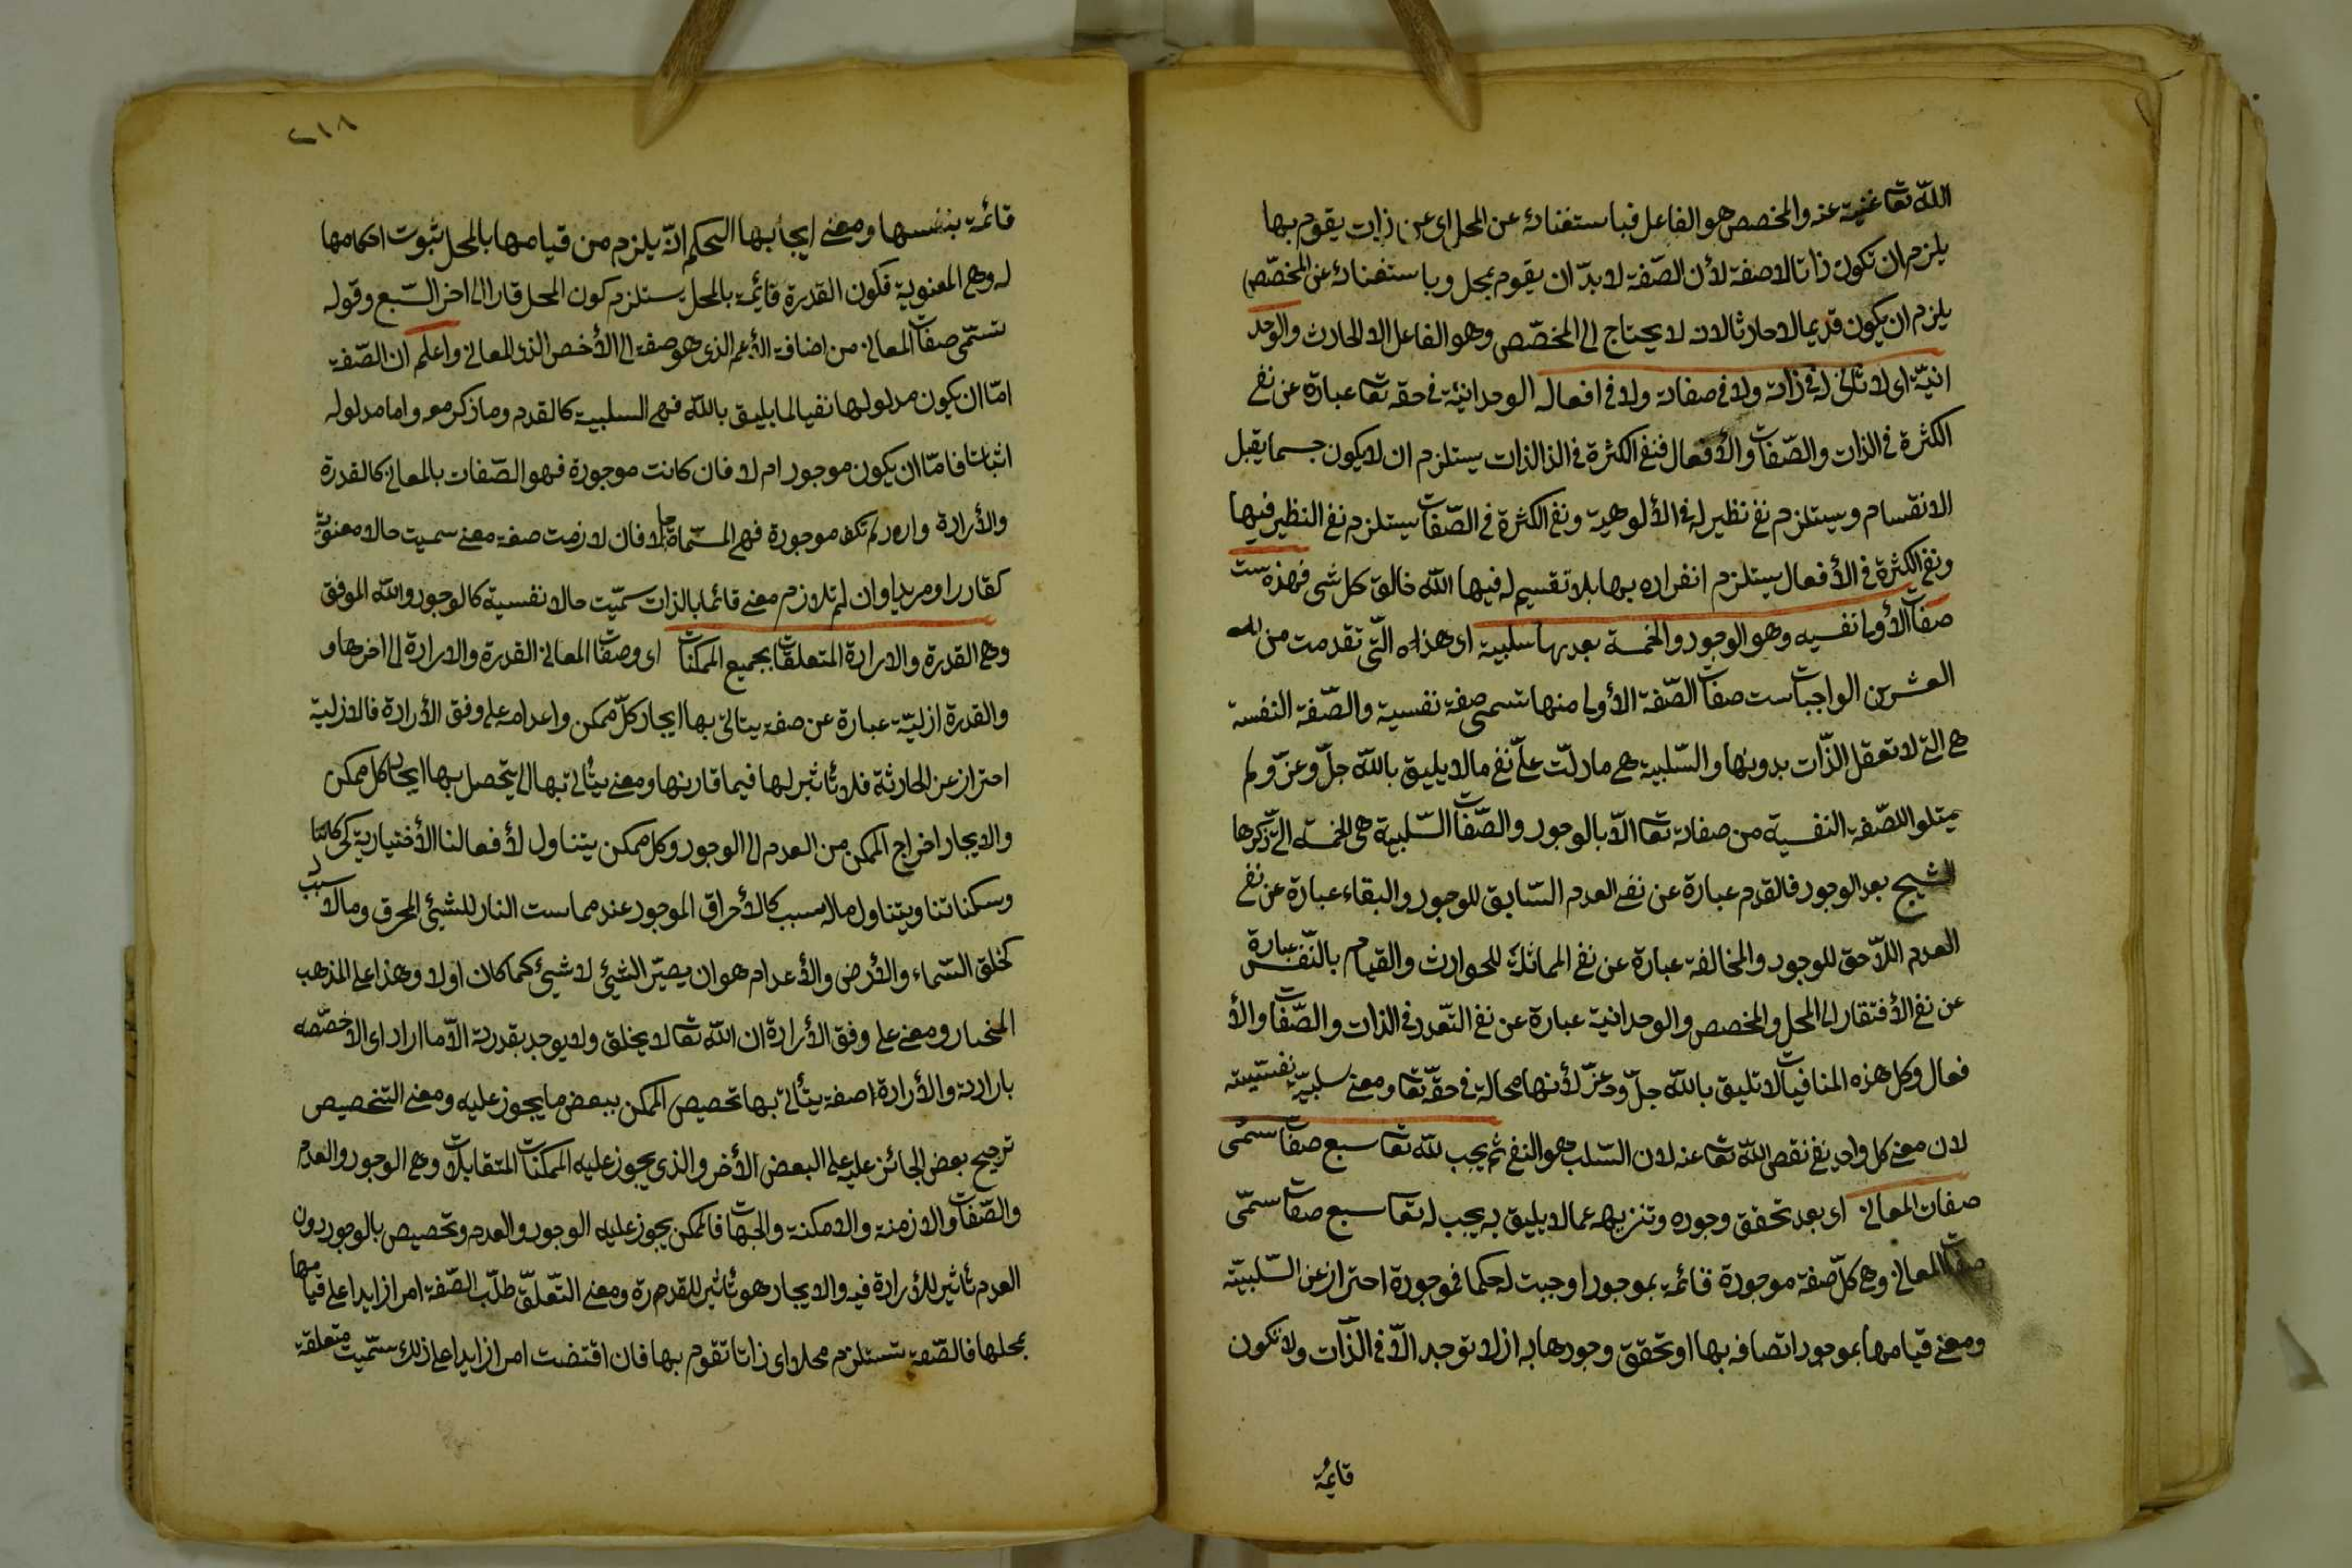 الله تعا غنيه عنه والمخصص هو الفاعل فباستغنائه عن المحل اى عن ذات يقوم بها
يلزم ان تكون ذاتا لا صفة لأن الصّفة لا بدّ ان يقوم بمحل وباستغنائه عن المخصّص
يلزم ان يكون قديما لا حادثا لانه لا يحتاج الى المخصّص وهو الفاعل الا الحادث والوحد
انيّة اى لا ثانى له فى ذاته ولا فى صفاته ولا فى افعاله الوحدانيّة فى حقه تعا عبارة عن نفى
الكثرة فى الذات والصّفات والأفعال فنفى الكثرة فى الذ الذات يستلزم ان لا يكون جسما يقبل
الانقسام ويستلزم نفى نظير له فى الألوهية ونفى الكثرة فى الصّفات يستلزم نفى النظير فيها
ونفى الكثرة فى الأفعال يستلزم انفراده بها بلا تقسيم له فيها الله خالق كل شى فهذه ست
صفات الأولى نفسيه وهو الوجود والخمسة بعدها سلبية اى هذه التّى تقدمت من
العشرين الواجبات ست صفات الصّفة الأولى منها تسمى صفة نفسية والصّفة النفسة
هى التى لا تعقل الذّات بدونها والسّلبية هى ما دلّت علّى نفى ما لا يليق بالله جلّ وعزّ ولم
يمثلوا للصّفة النفسية من صفاته تعا الّا بالوجود والصّفات السّلبية هى الخمسة التى ذكرها
الشيخ بعد الوجود فالقدم عبارة عن نفى العدم السّابق للوجود والبقاء عبارة عن نفى
العدم اللّاحق للوجود والمخالفة عبارة عن نفى المماثلة للحوادث والقيام بالنّفس عبارة
عن نفى الأفتقار الى المحل والمخصص والوحدانية عبارة عن نفى التّعدد فى الذات والصّفات والأ
فعال وكل هذه المنافيات لا تليق بالله جلّ وعزّ لأنها محالة فى حقّه تعا ومعنى سلبيّة نفسيّته
لان معنى كل واحد نفى نقص الله تعا عنه لان السّلب هو النفى ثم يجب لله تعا سبع صفات تسمّى
صفات المعانى اى بعد تحقق وجوده وتنزيهه عما لا يليق به يجب له تعا سبع صفات تسمّى
صفات المعانى وهى كلّ صفة موجودة قائمة بموجود اوجبت له حكما فموجودة احتراز عن السّلبيّة
ومعنى قيامها بموجود اتصافه بها او تحقق وجودها به اذ لا توجد الّا فى الذّات ولا تكون
قائمة
٢١٨
قائمة بنفسها ومعنى ايجابها الحكم انّه يلزم من قيامها بالمحل ثبوت احكامها
له وهى المعنوية فكون القدرة قائمة بالمحل يستلزم كون المحل قادرا الى اخر السّبع وقوله
تسمّى صفات المعانى من اضافة الأعم الذى هو صفة الى الأخص الذى المعانى واعلم ان الصّفة
امّا ان يكون مدلولها نفيا لما يليق بالله فهى السلبية كالقدم وما ذكر معه واما مدلوله
اثباتا فامّا ان يكون موجود ام لا فان كانت موجودة فهو الصّفات بالمعانى كالقدرة
والأرادة وان لم تكن موجودة فهى المسمّاة حالا فان لازمت صفة معنى سميت حالا معنوية
كقادرا ومريدا وان لم تلازم معنى قائما بالذات سمّيت حالا نفسية كالوجود والله الموفق
وهى القدرة والارادة المتعلقات بجميع الممكنات اى وصفات المعانى القدرة والارادة الى اخرها و
والقدرة ازليّة عبارة عن صفة يتاتى بها ايجاد كلّ ممكن واعدامه على وفق الأرادة فالازلية
احتراز عن الحادثة فلا تأثير لها فيما قارنها ومعنى يتأتى بها اى يتحصل بها ايجاد كل ممكن
والايجاد اخراج الممكن من العدم الى الوجود وكل ممكن يتناول لأفعالنا الأختيارية كحركاتنا
وسكناتنا ويتناول ماله سبب كالأحراق الموجود عند مماست النار للشيئ المحرق وما لا سبب له
كخلق السّماء والأرض والأعدام هو ان يصيّر الشيئ لا شيئ كما كان اولا وهذا على المذهب
المختار ومعنى على وفق الأرادة ان الله تعا لا يخلق ولا يوجد بقدرته الّا ما اراد اى الّا خصّصه
بارادته والأرادة صفة يتأتى بها تخصيص الممكن ببعض ما يجوز عليه ومعنى التخصيص
ترجيح بعض الجائز عليه على البعض الأخر والذى يجوز عليه الممكنات المتقابلات وهى الوجود والعدم
والصّفات والازمنة والامكنة والجهات فالممكن يجوز عليه الوجود والعدم وتخصيص بالوجود دون
العدم تأثير للأرادة فيه والايجاد هو تأثير للقدرة ومعنى التّعلّق طلب الصّفة امرا زايدا على قيامها
بمحلها فالصّفة تستلزم محلا اى ذاتا تقوم بها فان اقتضت امرا زايدا على ذلك سمّيت متعلقة